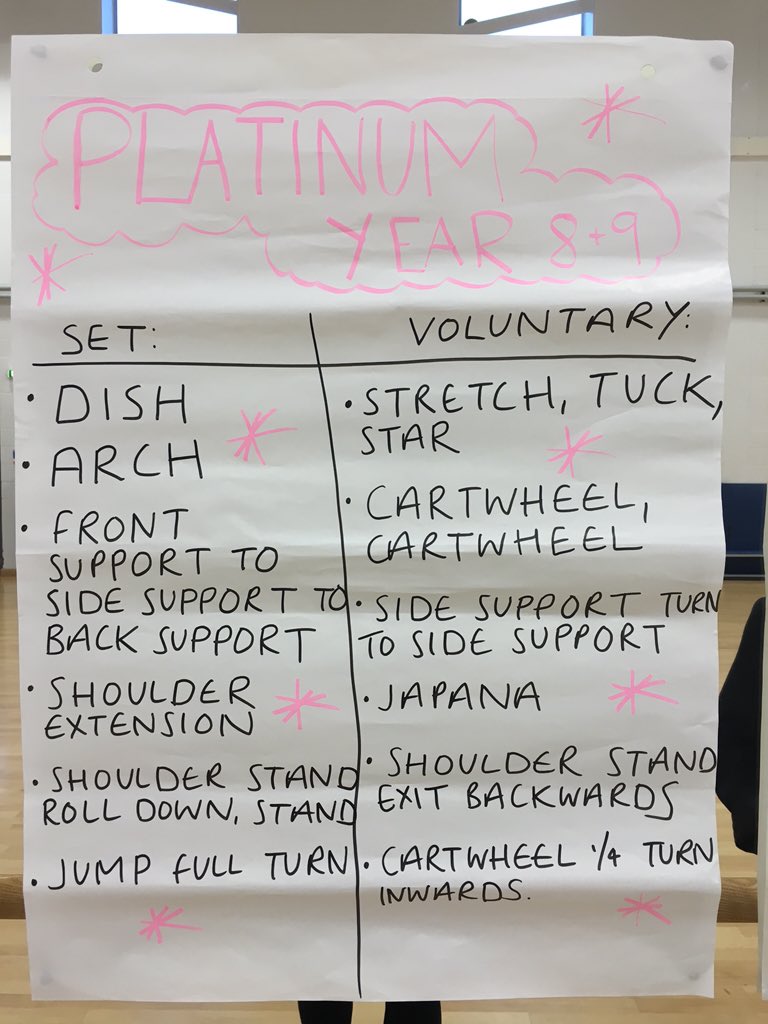 PLATINUM
YEAR 8+9
SET:
• DISH
• ARCH
• FRONT
SUPPORT TO
SIDE SUPPORT TO
BACK SUPPORT
• SHOULDER
EXTENSION
• SHOULDER STAND
ROLL DOWN, STAND
• JUMP FULL TURN
VOLUNTARY:
• STRETCH, TUCK,
STAR
• CARTWHEEL,
CARTWHEEL
• SIDE SUPPORT TURN
TO SIDE SUPPORT
• JAPANA
• SHOULDER STAND
EXIT BACKWARDS
• CARTWHEEL 1/4 TURN
INWARDS.